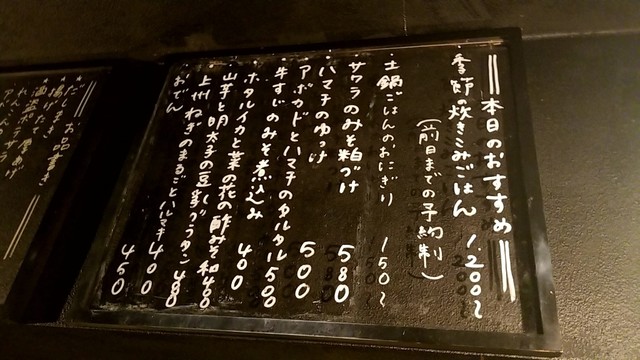 本日のおすすめ
季節の炊きこみごはん 1.200〜
(前日までの予約制)
土鍋ごはんのおにぎり 150〜
サワラのみそ粕づけ 580
ハマチのゆっけ 500
アボカドとハマチのタルタル 500
牛すじのみそ煮込み 400
ホタルイカと菜の花の酢みそ和 400
山芋と明太子の豆乳グラタン 480
上州ねぎのまるごとハルマキ 400
おでん 450
お品書き
揚げたて厚あげ